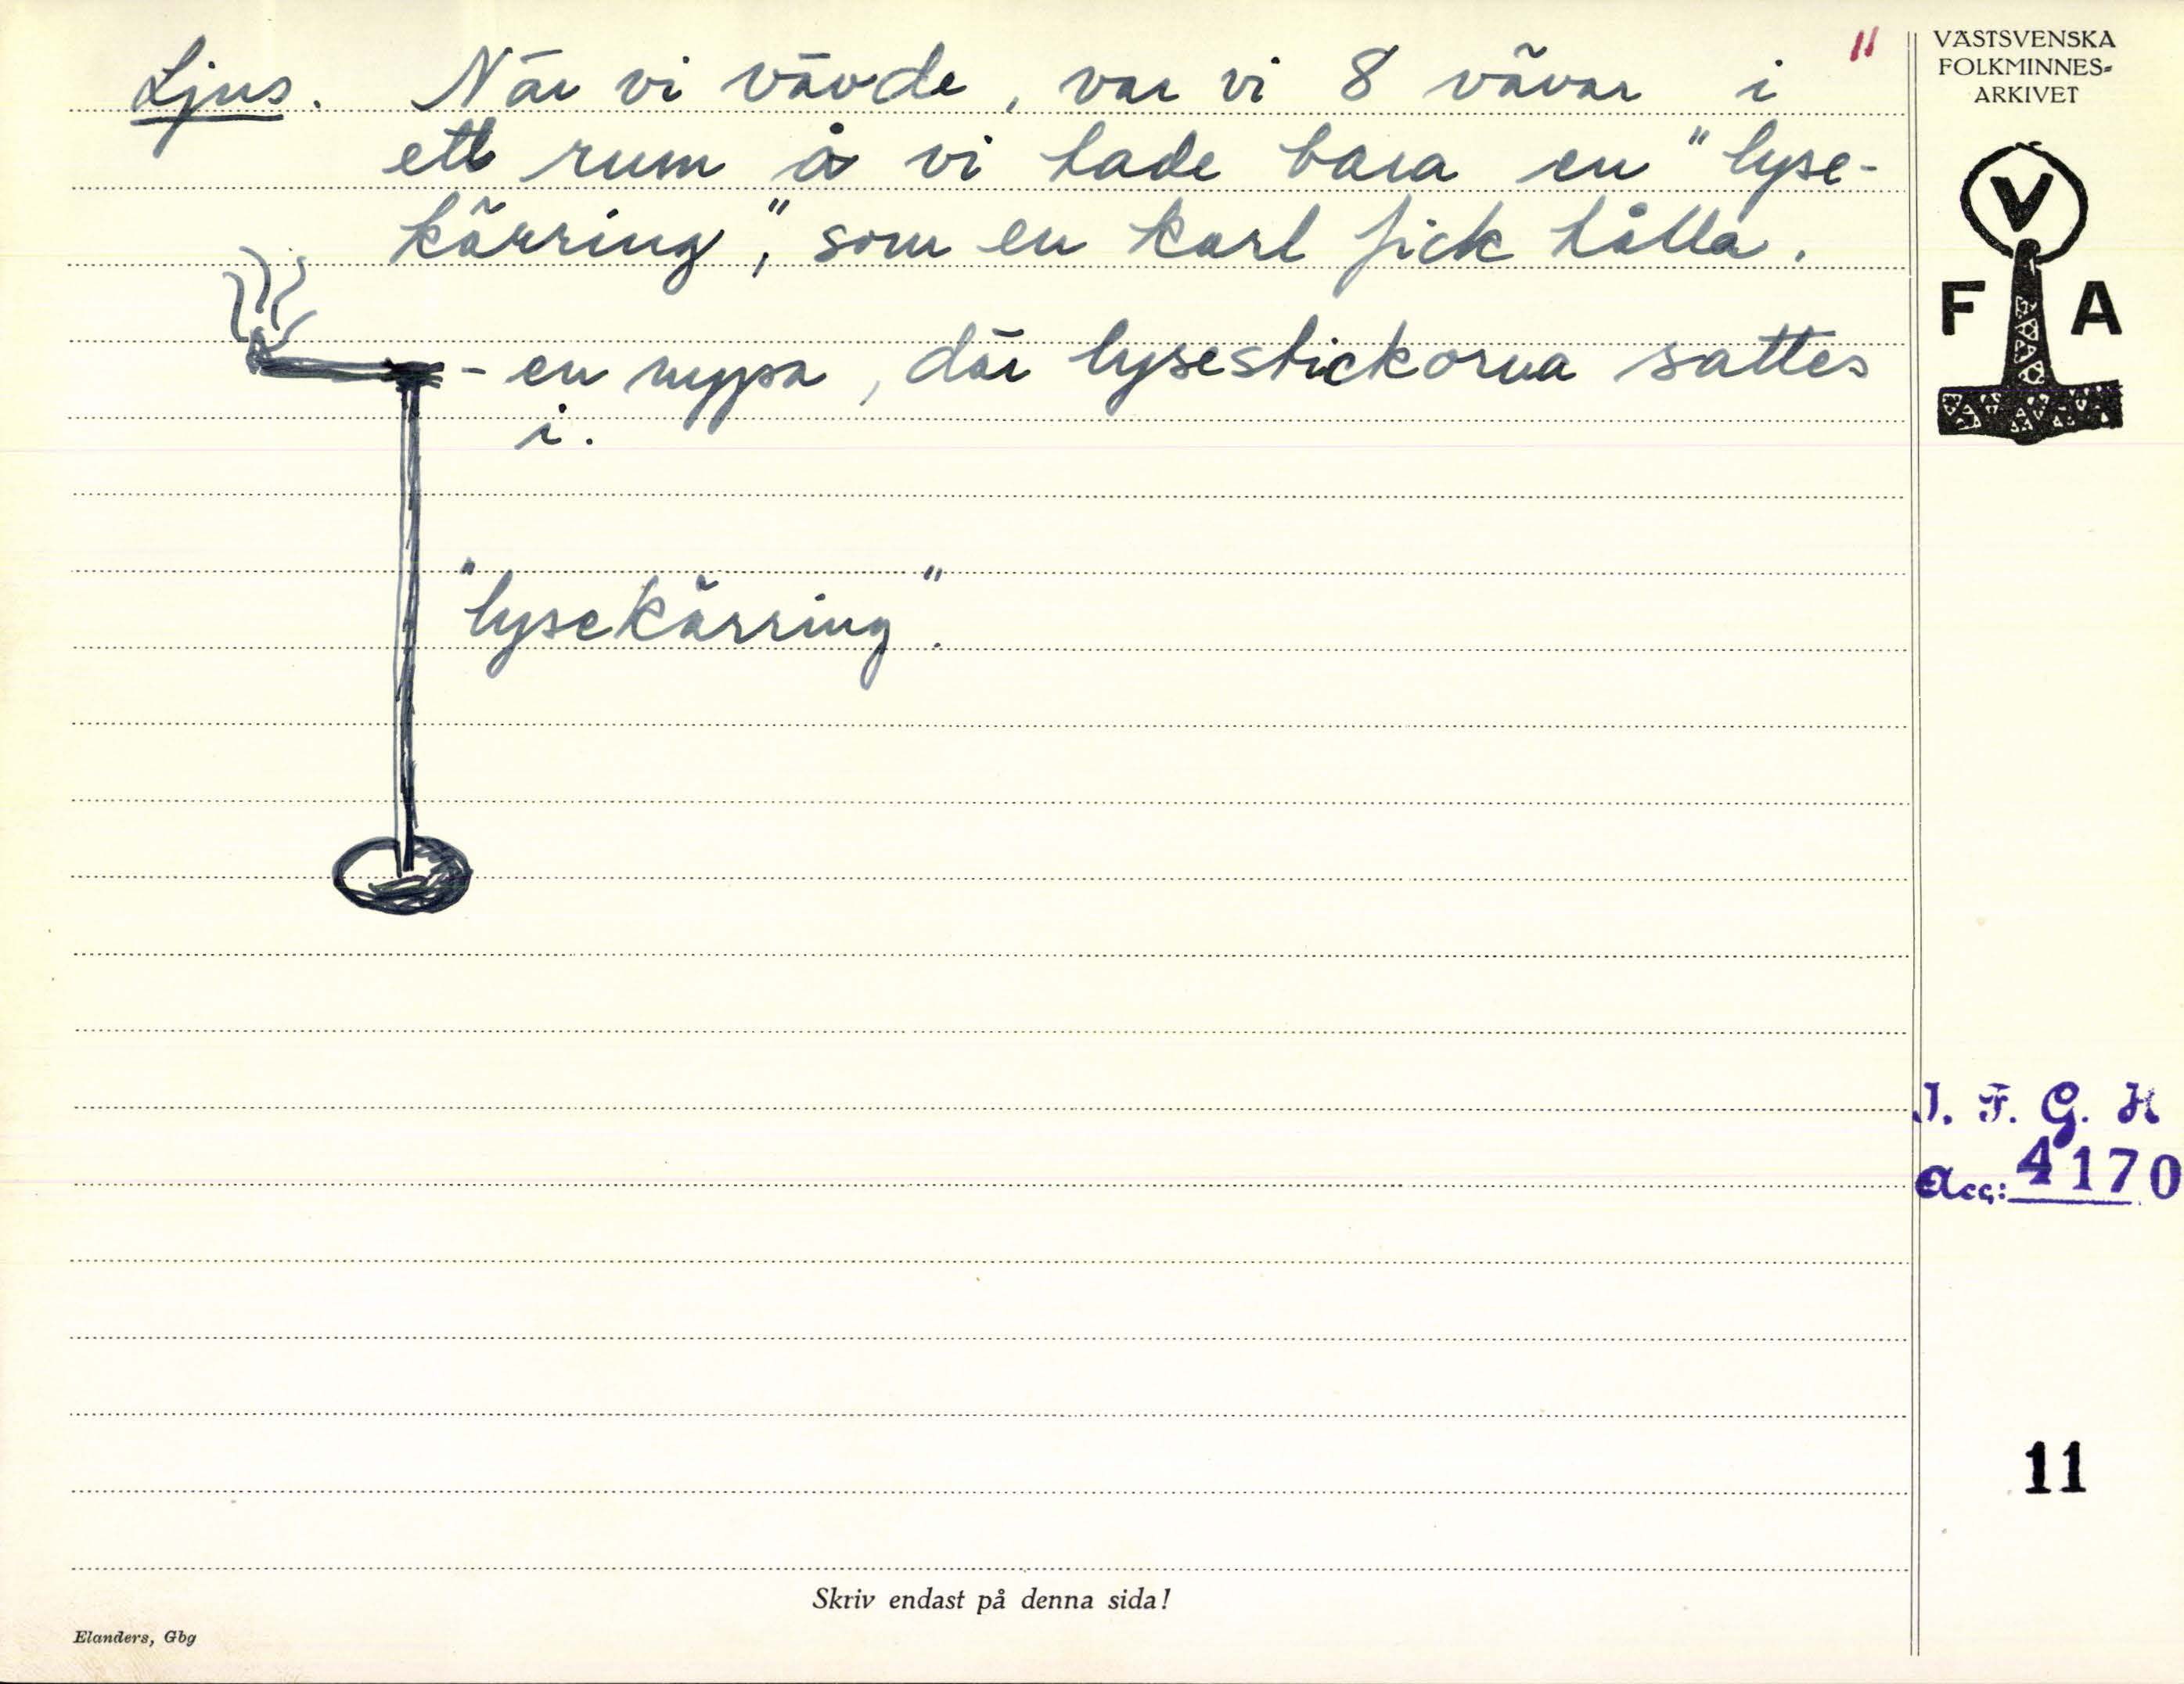 Ljus. När vi vävde, var vi 8 vävar i
ett rum å vi hade bara en "lyse-
kärring", som en karl fick hålla.
- en nypa, där lysestickorna sattes
i.
"lysekärring".
11
VÄSTSVENSKA
FOLKMINNES-
ARKIVET
V
F A
I. F. G. H
Acc: 4170
11
Skriv endast på denna sida!
Elanders, Gbg